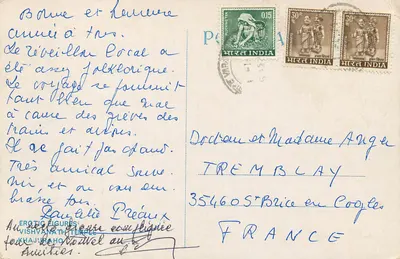 Bonne et heureuse
année à tous.
Le réveillon local a
été assez folklorique.
Le voyage se poursuit
tant bien que mal
à cause des grèves des
trains et avions.
Il ne fait pas chaud.
Très amical souve-
nir, et on vous em-
brasse tous.
EROTIC FIGURES
VISHVANATH TEMPLE
KHAJURAHO
Amitiés
P
भारत INDIA
0.15
भारत INDIA
भारत INDIA
Docteur et Madame Anger
TREMBLAY
35460 St Brice en Cogles
FRANCE